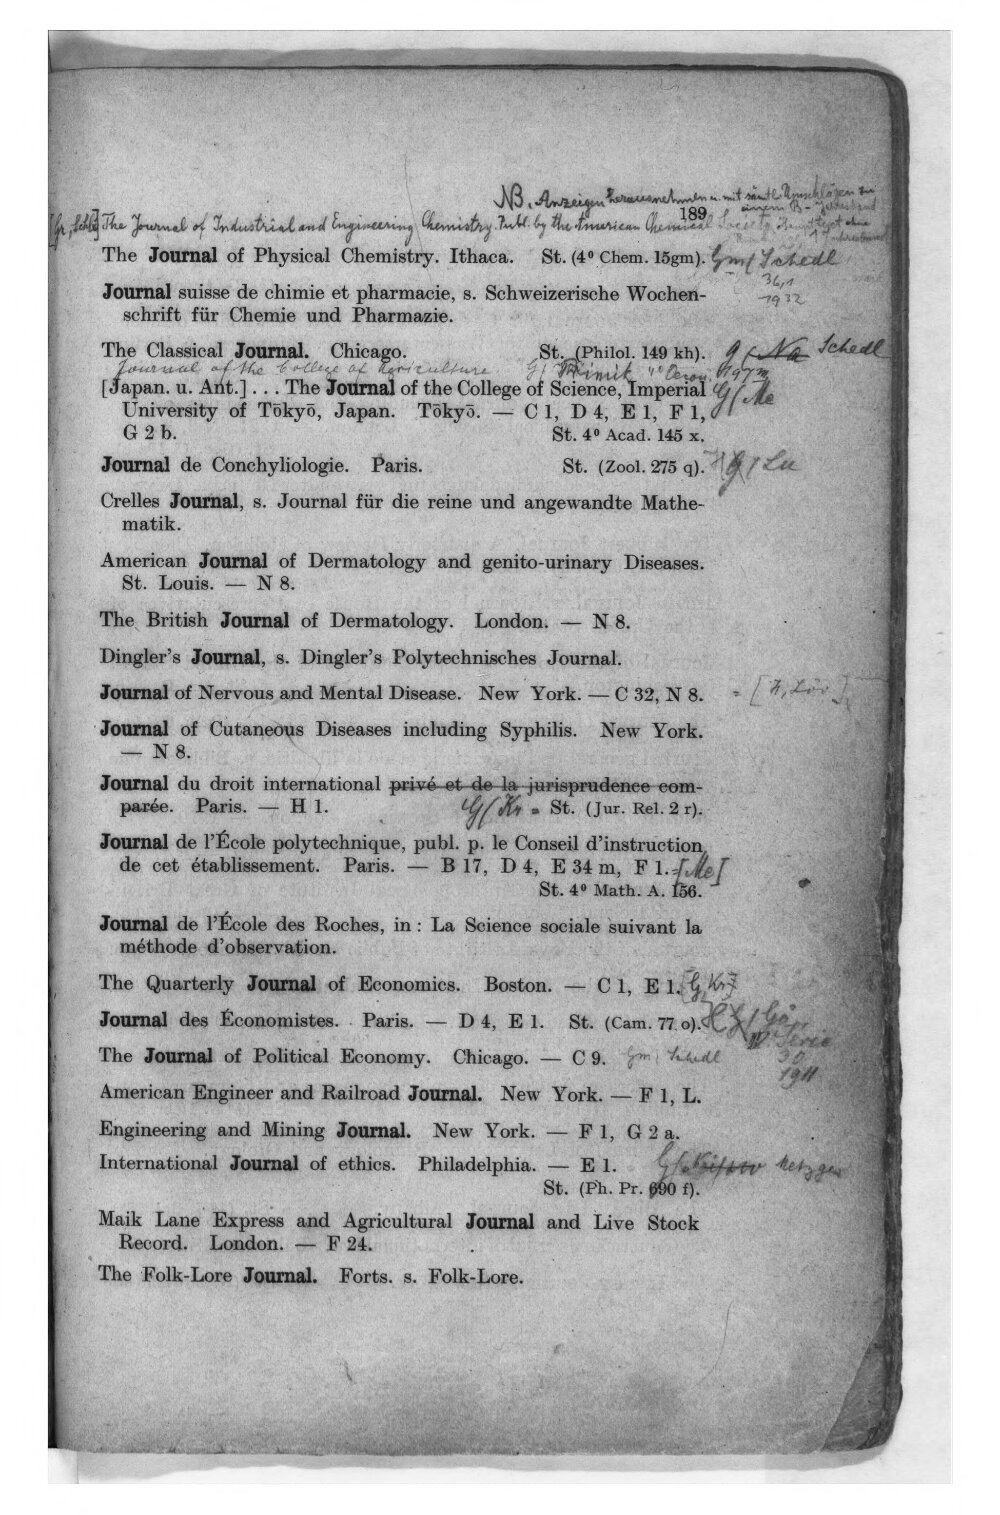 NB. Anzeigen herausnehmen u. mit sämtl. Umschlägen zu
einem B-
189
The Journal of Industrial and Engineering Chemistry. Publ. by the American Chemical Society.
The Journal of Physical Chemistry. Ithaca. St. (4⁰ Chem. 15gm). Gm/Schedl
36,1
1932
Journal suisse de chimie et pharmacie, s. Schweizerische Wochen-
schrift für Chemie und Pharmazie.
The Classical Journal. Chicago. St. (Philol. 149 kh). g/ Na Schedl
Journal of the College of Agriculture
[Japan. u. Ant.] . . . The Journal of the College of Science, Imperial G/Me
University of Tōkyō, Japan. Tōkyō. — C 1, D 4, E 1, F 1,
G 2 b. St. 4⁰ Acad. 145 x.
Journal de Conchyliologie. Paris. St. (Zool. 275 q). /Lu
Crelles Journal, s. Journal für die reine und angewandte Mathe-
matik.
American Journal of Dermatology and genito-urinary Diseases.
St. Louis. — N 8.
The British Journal of Dermatology. London. — N 8.
Dingler's Journal, s. Dingler's Polytechnisches Journal.
Journal of Nervous and Mental Disease. New York. — C 32, N 8.
Journal of Cutaneous Diseases including Syphilis. New York.
— N 8.
Journal du droit international privé et de la jurisprudence com-
parée. Paris. — H 1. G/Kr = St. (Jur. Rel. 2 r).
Journal de l'École polytechnique, publ. p. le Conseil d'instruction
de cet établissement. Paris. — B 17, D 4, E 34 m, F 1. [Me]
St. 4⁰ Math. A. 156.
Journal de l'École des Roches, in : La Science sociale suivant la
méthode d'observation.
The Quarterly Journal of Economics. Boston. — C 1, E 1. [G, Kr]
Journal des Économistes. Paris. — D 4, E 1. St. (Cam. 77 o).
Serie
The Journal of Political Economy. Chicago. — C 9. Gm/Schedl 30
1911
American Engineer and Railroad Journal. New York. — F 1, L.
Engineering and Mining Journal. New York. — F 1, G 2 a.
International Journal of ethics. Philadelphia. — E 1. G/ Metzger
St. (Ph. Pr. 690 f).
Maik Lane Express and Agricultural Journal and Live Stock
Record. London. — F 24.
The Folk-Lore Journal. Forts. s. Folk-Lore.